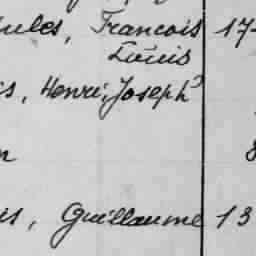 Jules, François 17
Louis
s, Henri, Joseph
n 8
is, Guillaume 13